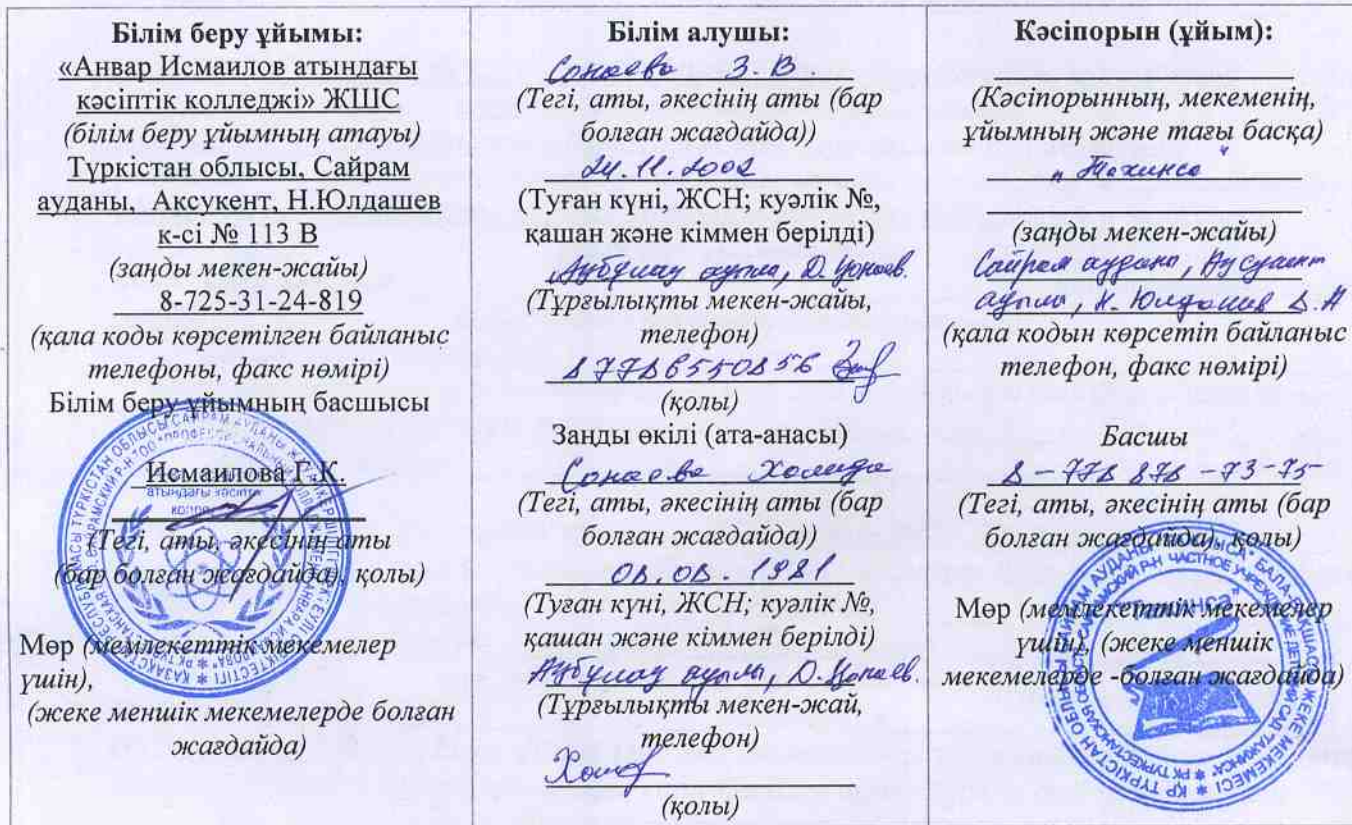 Білім беру ұйымы:
«Анвар Исмаилов атындағы
кәсіптік колледжі» ЖШС
(білім беру ұйымның атауы)
Түркістан облысы, Сайрам
ауданы, Аксукент, Н.Юлдашев
к-сі № 113 В
(заңды мекен-жайы)
8-725-31-24-819
(қала коды көрсетілген байланыс
телефоны, факс нөмірі)
Білім беру ұйымның басшысы
Исмаилова Г.К.
(Тегі, аты, әкесінің аты
(бар болған жағдайда), қолы)
Мөр (мемлекеттік мекемелер
үшін),
(жеке меншік мекемелерде болған
жағдайда)
Білім алушы:
Сонаева З.В.
(Тегі, аты, әкесінің аты (бар
болған жағдайда))
24.11.2002
(Туған күні, ЖСН; куәлік №,
қашан және кіммен берілді)
ауылы, D.
(Тұрғылықты мекен-жайы,
телефон)
87786550856
(қолы)
Заңды өкілі (ата-анасы)
Сонаева Холида
(Тегі, аты, әкесінің аты (бар
болған жағдайда))
08.08.1981
(Туған күні, ЖСН; куәлік №,
қашан және кіммен берілді)
ауылы, D.
(Тұрғылықты мекен-жай,
телефон)
(қолы)
Кәсіпорын (ұйым):
(Кәсіпорынның, мекеменің,
ұйымның және тағы басқа)
"Тахинса"
(заңды мекен-жайы)
Сайрам ауданы, Ақсукент
ауылы, Н. Юлдашев
(қала кодын көрсетіп байланыс
телефон, факс нөмірі)
Басшы
8-778 878-73-75
(Тегі, аты, әкесінің аты (бар
болған жағдайда), қолы)
Мөр (мемлекеттік мекемелер
үшін), (жеке меншік
мекемелерде -болған жағдайда)